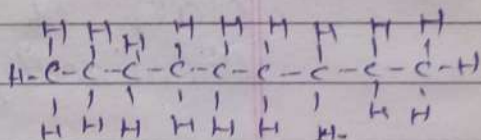 H H H H H H H H H
H-C-C-C-C-C-C-C-C-C-H
H H H H H H H H H